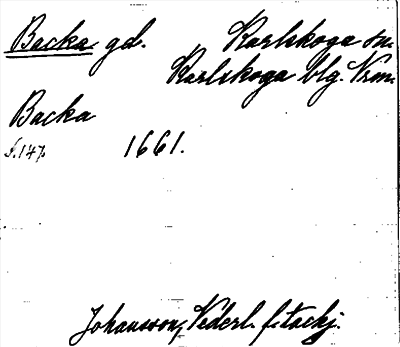 Backa gd. Karlskoga sn.
Karlskoga blg. Vrml.
Backa
s. 147. 1661.
Johansson, Vederl. f. tackj.